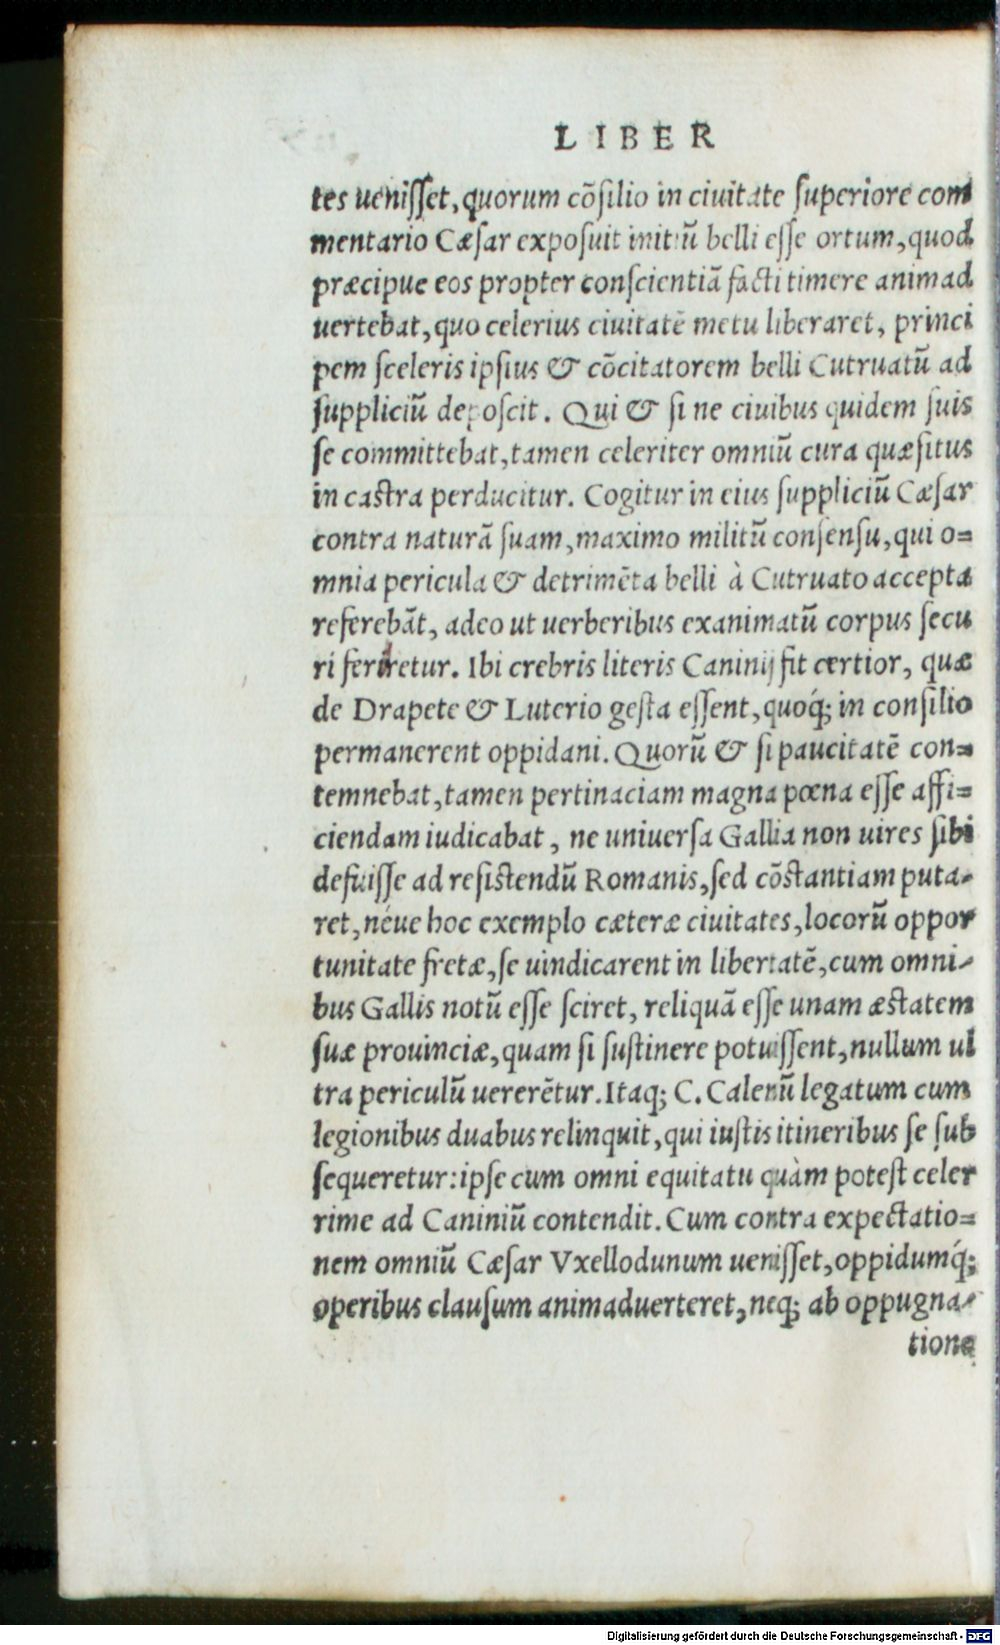 LIBER
tes uenisset, quorum cõsilio in ciuitate superiore com
mentario Cæsar exposuit initiũ belli esse ortum, quod
præcipue eos propter conscientiã facti timere animad
uertebat, quo celerius ciuitatẽ metu liberaret, princi
pem sceleris ipsius & cõcitatorem belli Cutruatũ ad
suppliciũ deposcit. Qui & si ne ciuibus quidem suis
se committebat, tamen celeriter omniũ cura quæsitus
in castra perducitur. Cogitur in eius suppliciũ Cæsar
contra naturã suam, maximo militũ consensu, qui o=
mnia pericula & detrimẽta belli à Cutruato accepta
referebãt, adeo ut uerberibus exanimatũ corpus secu
ri feriretur. Ibi crebris literis Caninij fit certior, quæ
de Drapete & Luterio gesta essent, quoq́; in consilio
permanerent oppidani. Quorũ & si paucitatẽ con=
temnebat, tamen pertinaciam magna pœna esse affi=
ciendam iudicabat, ne uniuersa Gallia non uires sibi
defuisse ad resistendũ Romanis, sed cõstantiam puta-
ret, néue hoc exemplo cæteræ ciuitates, locorũ oppor
tunitate fretæ, se uindicarent in libertatẽ, cum omni-
bus Gallis notũ esse sciret, reliquã esse unam æstatem
suæ prouinciæ, quam si sustinere potuissent, nullum ul
tra periculũ uererẽtur. Itaq; C. Calenũ legatum cum
legionibus duabus relinquit, qui iustis itineribus se sub
sequeretur: ipse cum omni equitatu quàm potest celer
rime ad Caniniũ contendit. Cum contra expectatio=
nem omniũ Cæsar Vxellodunum uenisset, oppidumq́;
operibus clausum animaduerteret, neq; ab oppugna-
tione
Digitalisierung gefördert durch die Deutsche Forschungsgemeinschaft - DFG